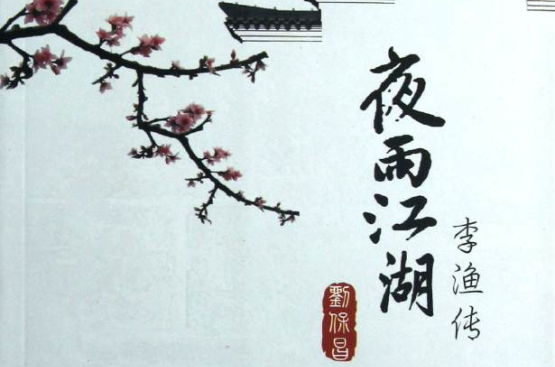 夜雨江湖
李渔传
劉保昌